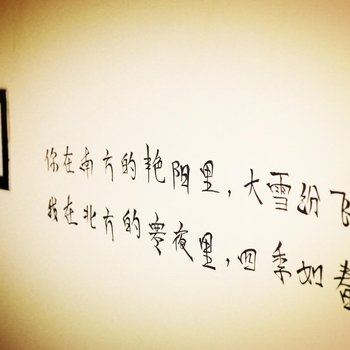 你在南方的艳阳里,大雪纷飞
我在北方的寒夜里,四季如春